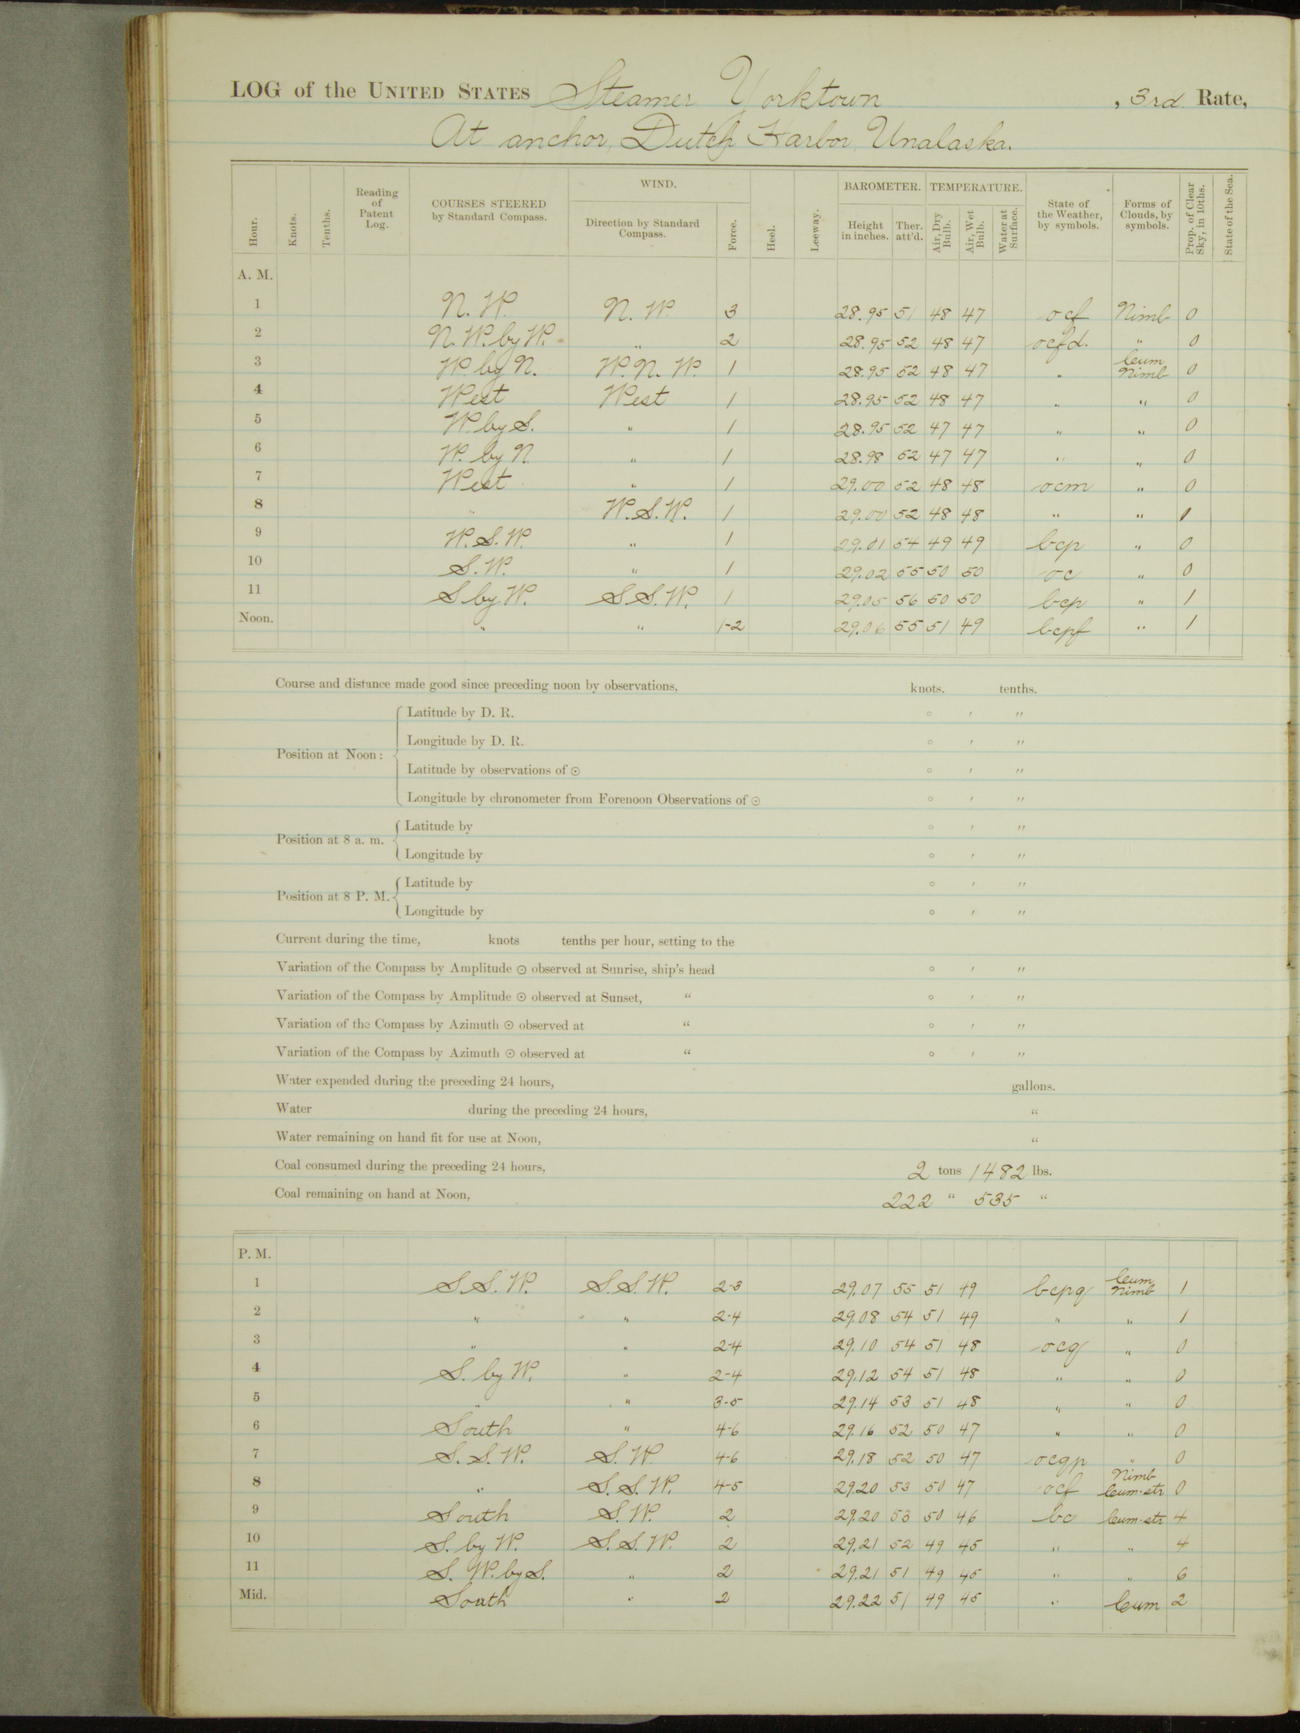 LOG of the UNITED STATES Steamer Yorktown , 3rd Rate,
At anchor, Dutch Harbor, Unalaska.
Hour. Knots. Tenths. Reading of Patent Log. COURSES STEERED by Standard Compass. WIND. Direction by Standard Compass. Force. Heel. Leeway. BAROMETER. Height in inches. Ther. att'd. TEMPERATURE. Air, Dry Bulb. Air, Wet Bulb. Water at Surface. State of the Weather, by symbols. Forms of Clouds, by symbols. Prop. of Clear Sky, in 10ths. State of the Sea.
A. M.
1 N. W. N. W. 3 28.95 51 48 47 ocf Nimb 0
2 N. W. by W. " 2 28.95 52 48 47 ocfd. " 0
3 W. by N. W. N. W. 1 28.95 52 48 47 " Cum Nimb 0
4 West West 1 28.95 52 48 47 " " 0
5 W. by S. " 1 28.95 52 47 47 " " 0
6 W. by N. " 1 28.98 52 47 47 " " 0
7 West " 1 29.00 52 48 48 ocm " 0
8 " W. S. W. 1 29.00 52 48 48 " " 1
9 W. S. W. " 1 29.01 54 49 49 bcp " 0
10 S. W. " 1 29.02 55 50 50 oc " 0
11 S by W. S S. W. 1 29.05 56 50 50 bcp " 1
Noon. " " 1-2 29.06 55 51 49 bcpf " 1
Course and distance made good since preceding noon by observations, knots. tenths.
Position at Noon: Latitude by D. R. ° ′ ″
Longitude by D. R. ° ′ ″
Latitude by observations of ☉ ° ′ ″
Longitude by chronometer from Forenoon Observations of ☉ ° ′ ″
Position at 8 a. m. Latitude by ° ′ ″
Longitude by ° ′ ″
Position at 8 P. M. Latitude by ° ′ ″
Longitude by ° ′ ″
Current during the time, knots tenths per hour, setting to the
Variation of the Compass by Amplitude ☉ observed at Sunrise, ship's head ° ′ ″
Variation of the Compass by Amplitude ☉ observed at Sunset, " ° ′ ″
Variation of the Compass by Azimuth ☉ observed at " ° ′ ″
Variation of the Compass by Azimuth ☉ observed at " ° ′ ″
Water expended during the preceding 24 hours, gallons.
Water during the preceding 24 hours, "
Water remaining on hand fit for use at Noon, "
Coal consumed during the preceding 24 hours, 2 tons 1482 lbs.
Coal remaining on hand at Noon, 222 " 535 "
P. M.
1 S. S. W. S. S. W. 2-3 29.07 55 51 49 bcpq Cum Nimb 1
2 " " 2-4 29.08 54 51 49 " " 1
3 " " 2-4 29.10 54 51 48 ocq " 0
4 S. by W. " 2-4 29.12 54 51 48 " " 0
5 " " 3-5 29.14 53 51 48 " " 0
6 South " 4-6 29.16 52 50 47 " " 0
7 S. S. W. S. W. 4-6 29.18 52 50 47 ocqp " 0
8 " S. S. W. 4-5 29.20 53 50 47 ocf Nimb Cum-str 0
9 South S. W. 2 29.20 53 50 46 bc Cum-str 4
10 S. by W. S. S. W. 2 29.21 52 49 45 " " 4
11 S. W. by S. " 2 29.21 51 49 45 " " 6
Mid. South " 2 29.22 51 49 45 " Cum 2